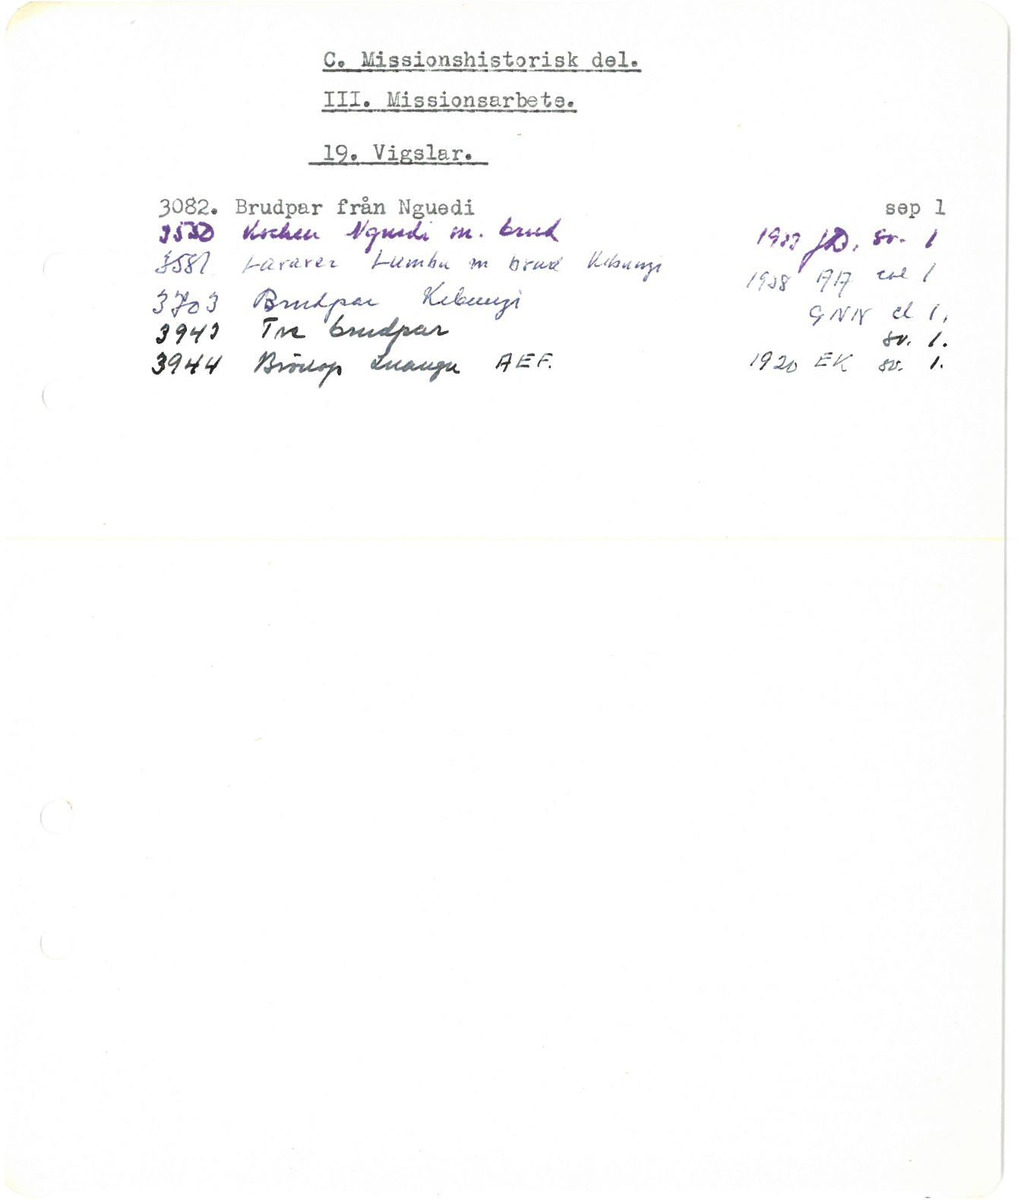 C. Missionshistorisk del.
III. Missionsarbete.
19. Vigslar.
3082. Brudpar från Nguedi sep 1
Kocken Nguedi m. brud JD. sv. 1
3581 Läraren Lumbu m brud Kibunzi 1938 AA col 1
3703 Brudpar Kibunzi GNN cl 1.
3943 Tre brudpar sv. 1.
3944 Bröllop Luangu AEF. 1920 EK sv. 1.